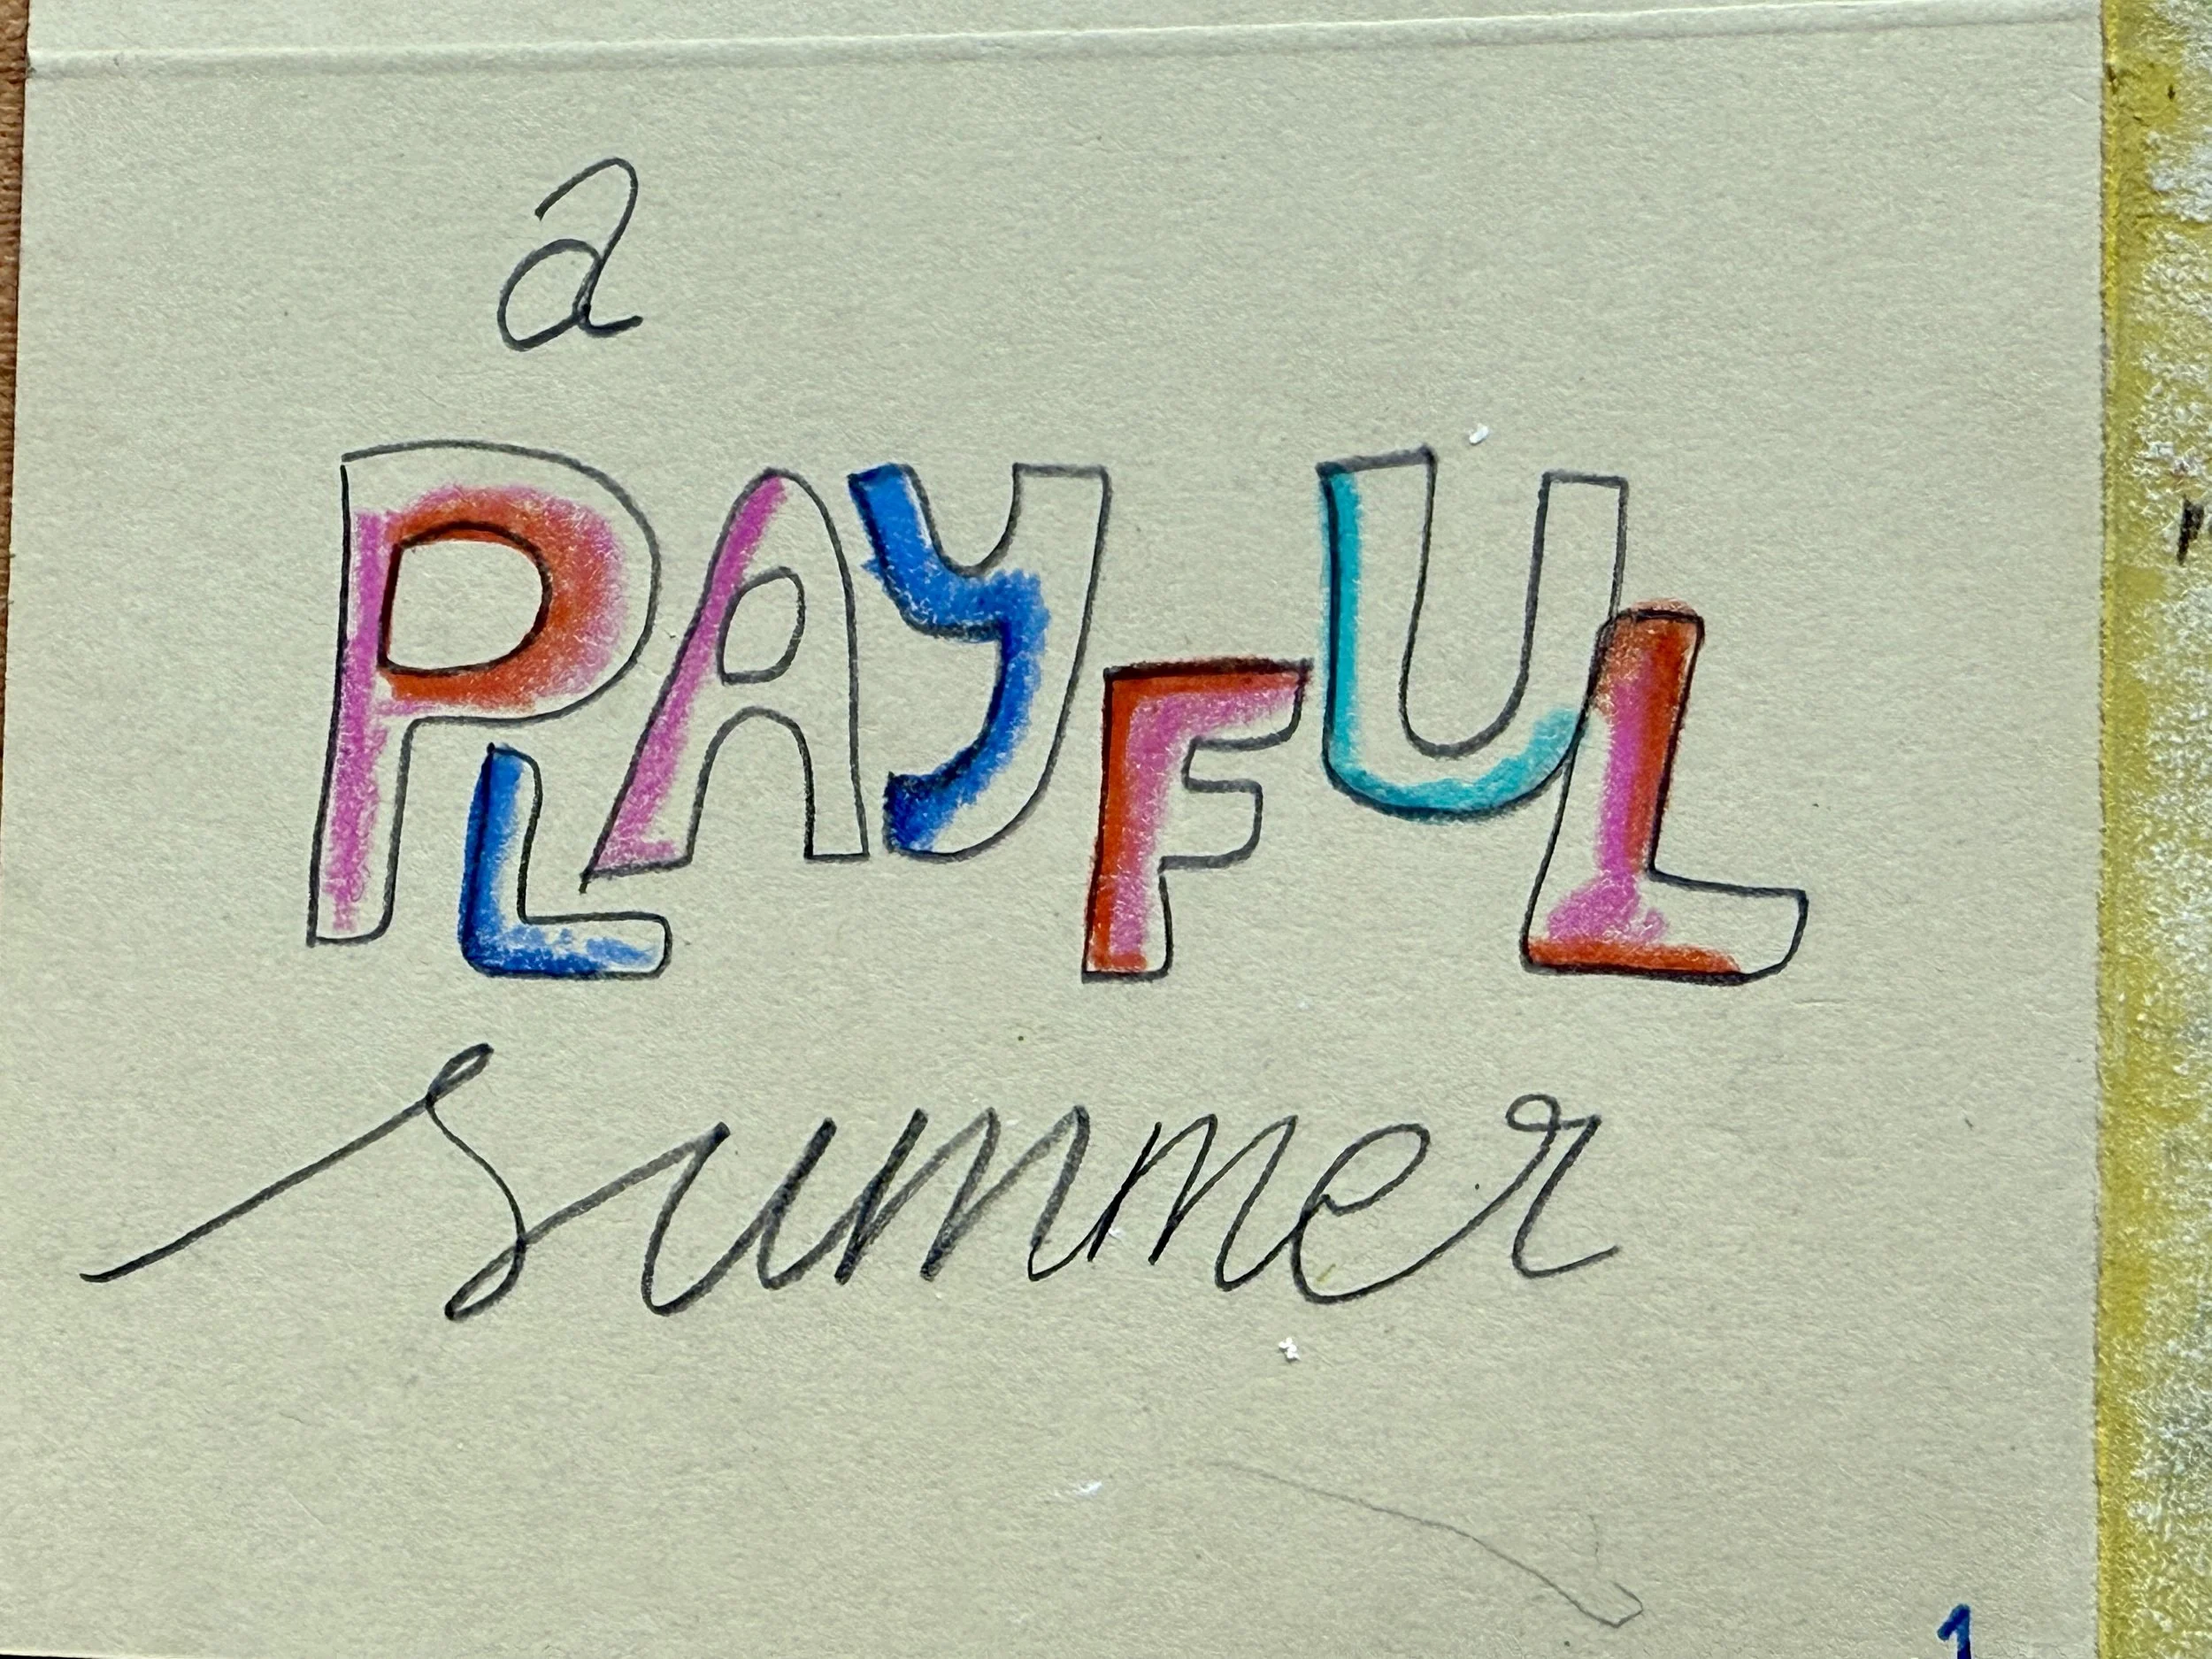 a
PLAYFUL
summer
1